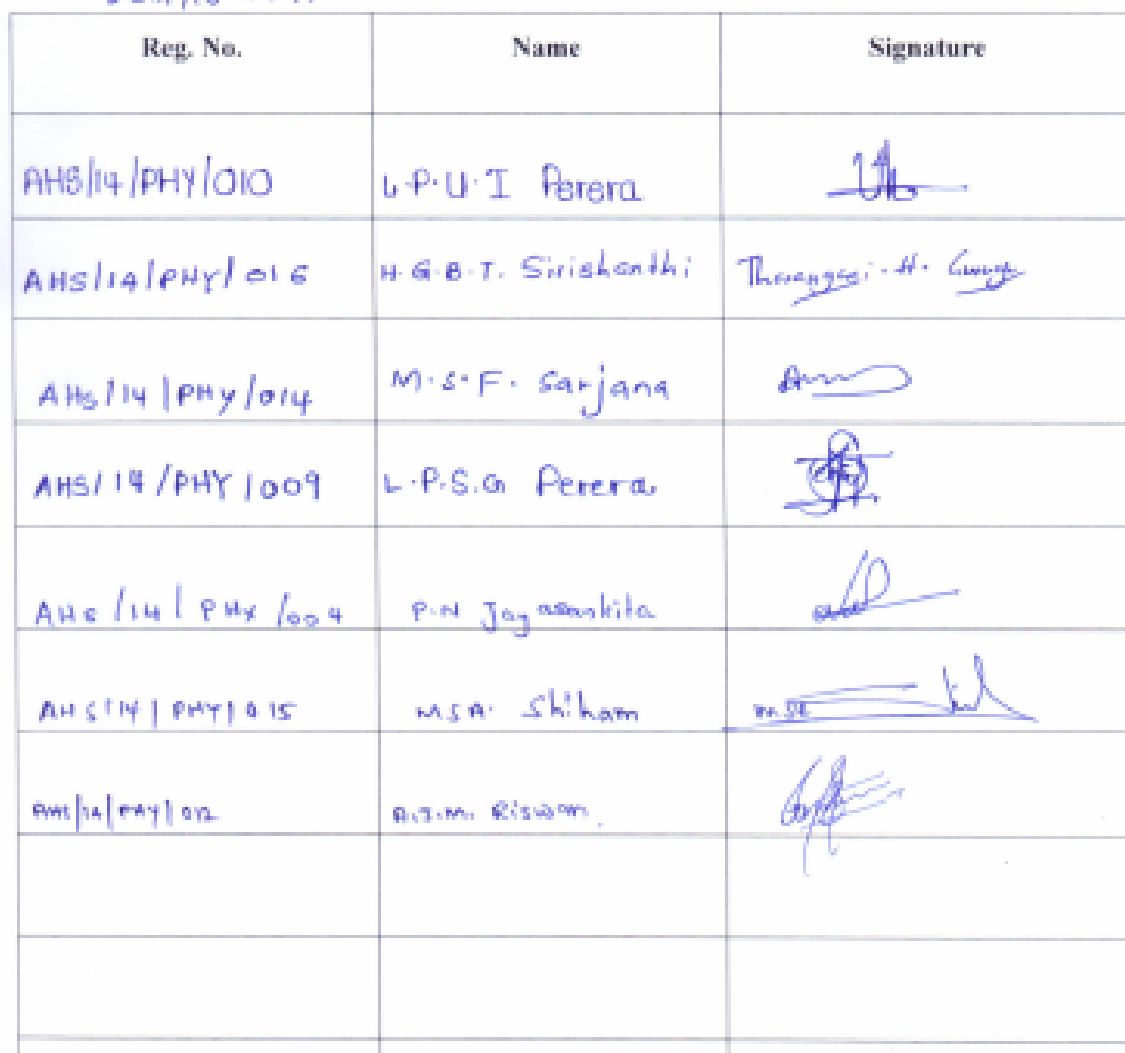 Reg. No. Name Signature
AHS/14/PHY/010 L.P.U.I Perera
AHS/14/PHY/016 H.G.B.T. Sirishanthi
AHS/14/PHY/014 M.S.F. Sarjana
AHS/14/PHY/009 L.P.S.G Perera
AHS/14/PHY/004 P.N
AHS/14/PHY/015 MSA. Shiham
AHS/14/PHY/012 A.J.M. Riswan